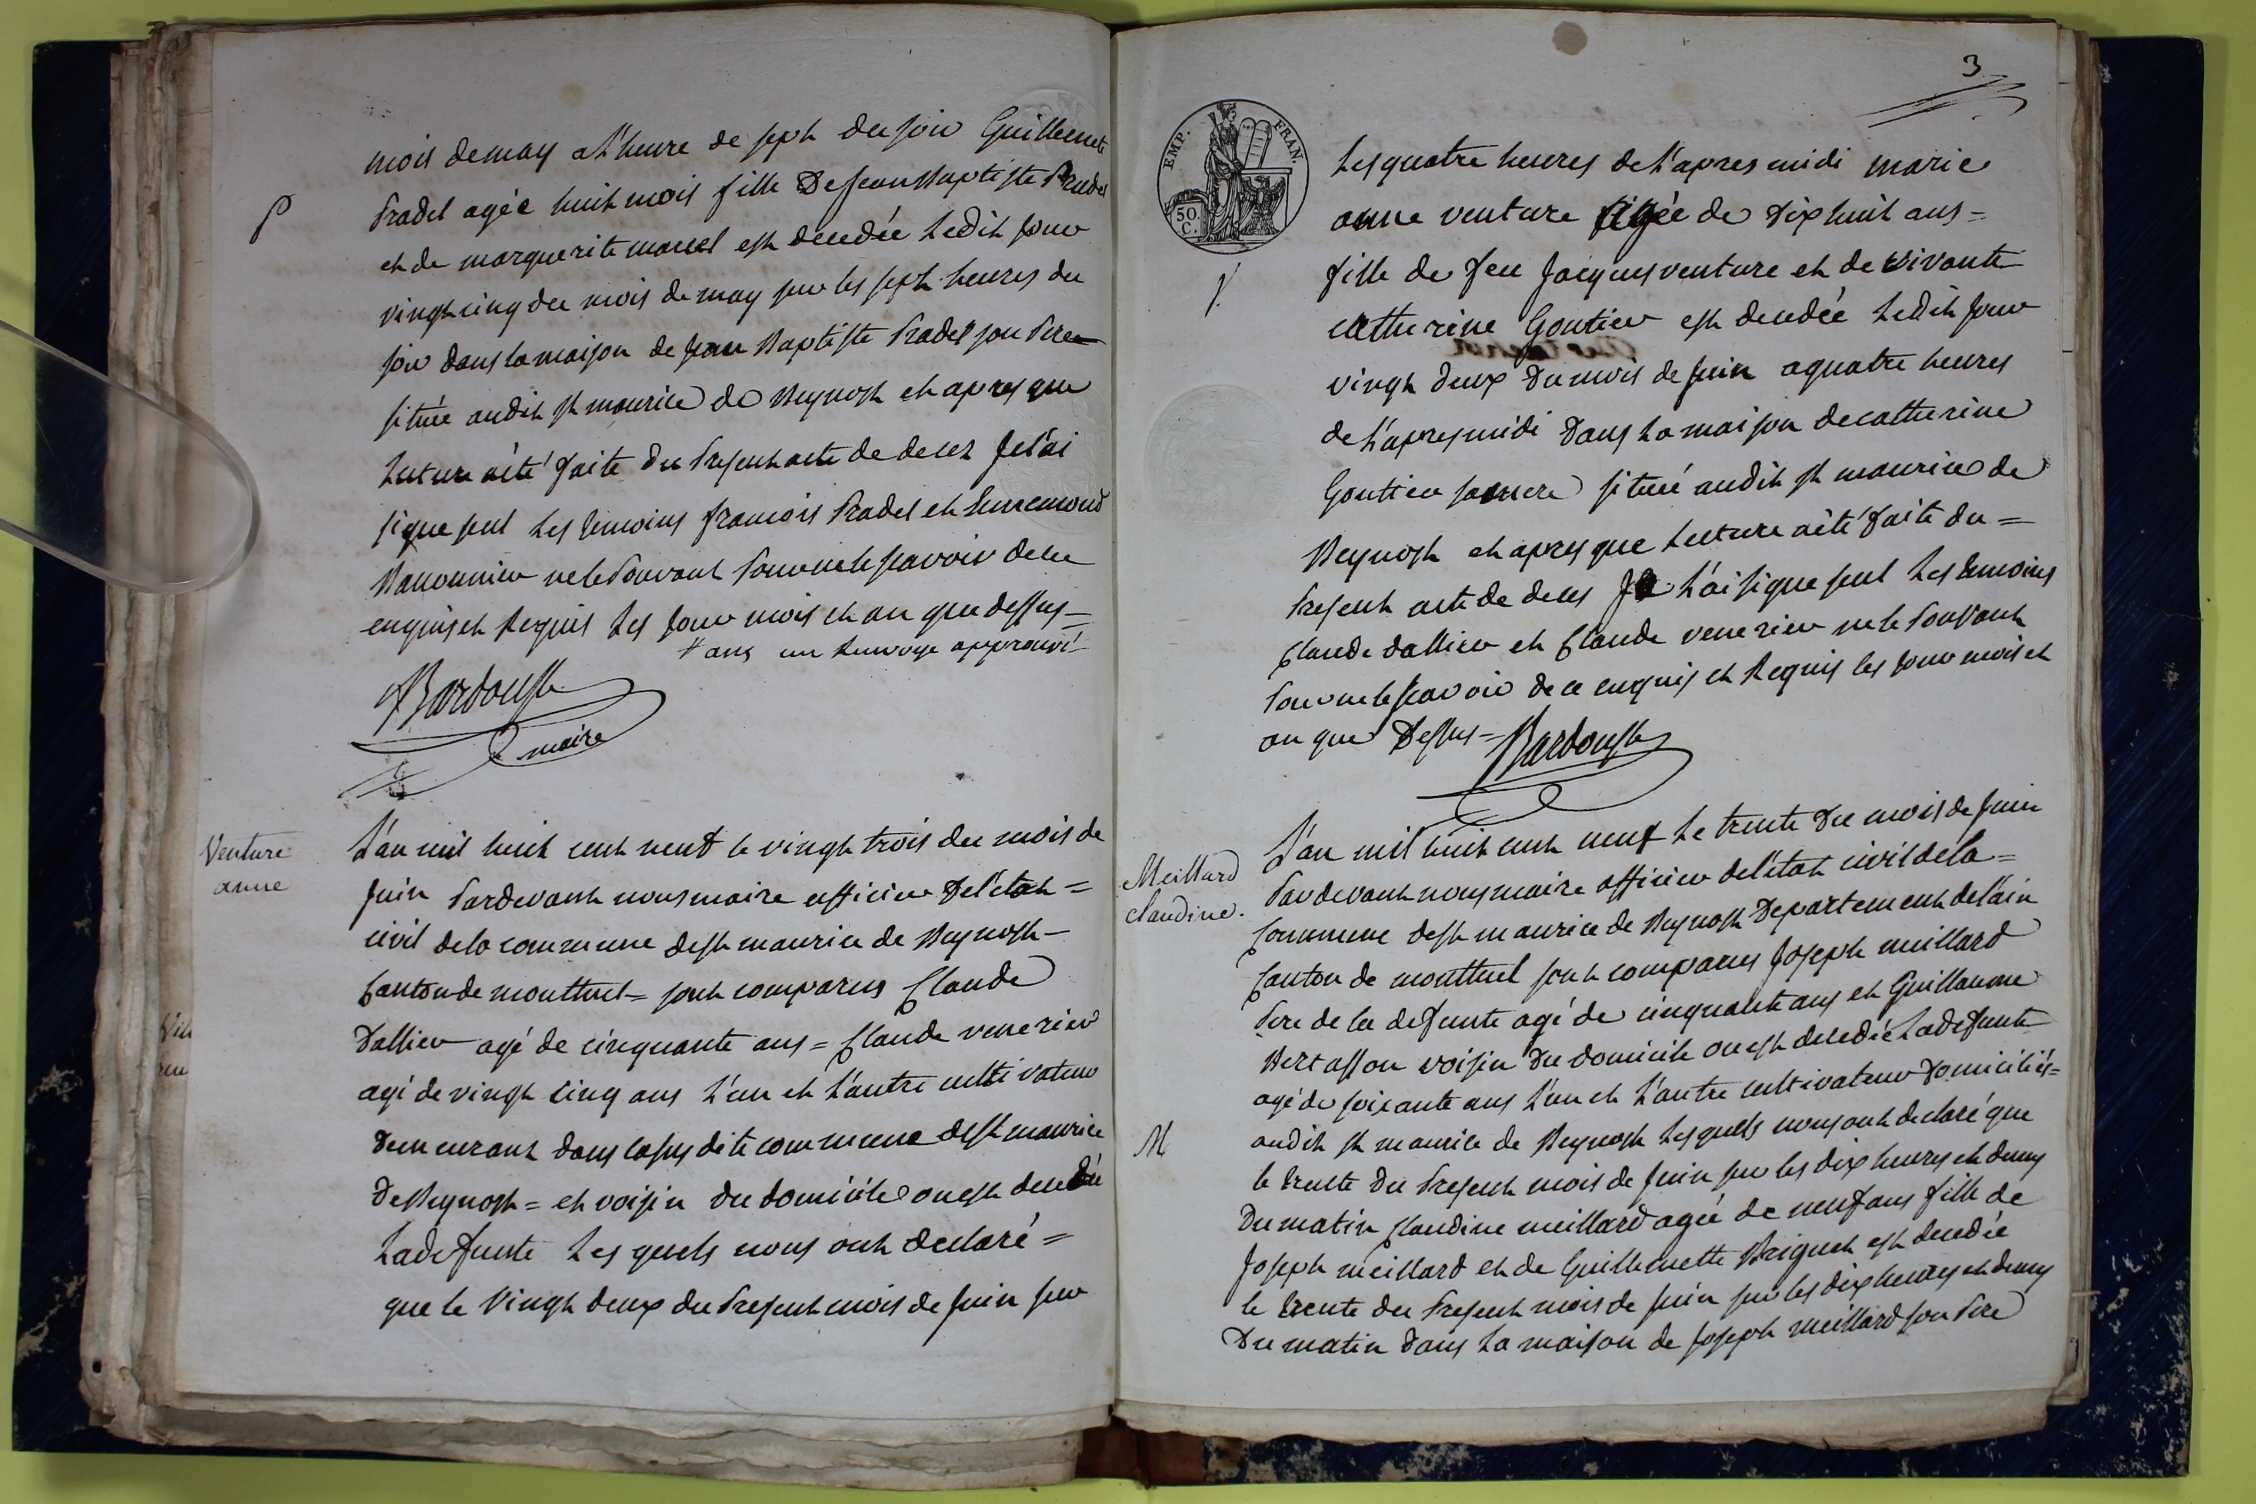 mois de may a l'heure de sept du soir Guillemete
P
Pradel agée huit mois fille De Jean Baptiste Pradel
et de marguerite morel est decedée Ledit jour
vingt cinq du mois de may sur les sept heures du
soir dans la maison de jean Baptiste Pradel son Pere
située audit st maurice de Beynost et apres que
Lecture a été faite du Present acte de deces Je l'ai
signe seul Les temoins francois Pradel et
ne le Pouvant Pour ne le scavoir de ce
enquis et Requis Les jour mois et an que dessus =
# ans un Renvoye approuvé
Bardoush
maire
Venture
anne
L'an mil huit cent neuf le vingt trois du mois de
Juin Pardevant nous maire officier De l'état =
civil de la commune de st maurice de Beynost -
Canton de montluel = sont comparus Claude
Dallier agé de cinquante ans = Claude venerier
agé de vingt cinq ans L'un et L'autre cultivateur
Demeurant dans la susdite commune de st maurice
De Beynost = et voisin du domicile ou est decedée
La defunte Les quels nous ont declaré =
que le Vingt deux du Present mois de Juin sur
3
EMP. FRAN.
50 C.
Les quatre heures de l'apres midi marie
anne venture agée de Dix huit ans =
fille de feu Jacques venture et de vivante
catherine Goutier est decedée Ledit jour
vingt deux Du mois de Juin a quatre heures
de L'apres midi Dans La maison de catherine
Goutier sa mere située audit st maurice de
Beynost et apres que Lecture a été faite du =
Present acte de deces Je L'ai signe seul Les temoins
Claude dallier et Claude venerier ne le Pouvant
Pour ne le scavoir de ce enquis et Requis les jour mois et
an que Dessus = Bardoush
Meillard
claudine.
L'an mil huit cent neuf Le trente Du mois de Juin
Pardevant nous maire officier de l'état civil de la =
Commune de st maurice de Beynost Departement de l'ain
Canton de montluel sont comparus Joseph meillard
Pere de la defunte agé de cinquante ans et Guillaume
Bertasson voisin Du domicile ou est decedée La defunte
agé de soixante ans L'un et L'autre cultivateur Domiciliés =
M
audit st maurice de Beynost Lesquels nous ont declaré que
le trente Du Present mois de Juin sur les dix heures et demy
Du matin Claudine meillard agée de neuf ans fille de
Joseph meillard et de Guillemette Briguet est decedée
le trente du Present mois de Juin sur les dix heures et demy
Du matin Dans La maison de Joseph meillard son Pere